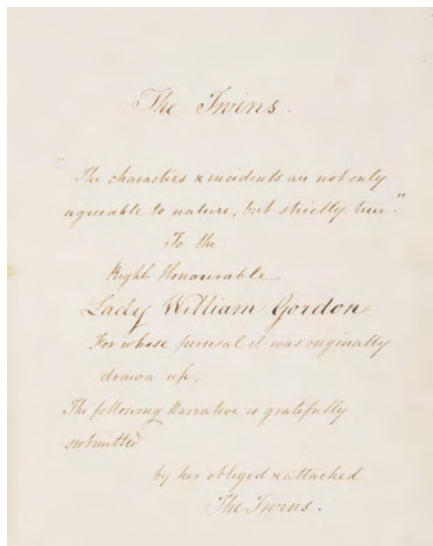 The Twins.
"The characters & incidents are not only
agreeable to nature, but strictly true."
To the
Right Honourable
Lady William Gordon
For whose perusal it was originally
drawn up.
The following Narrative is gratefully
submitted
by her obliged & attached
The Twins.